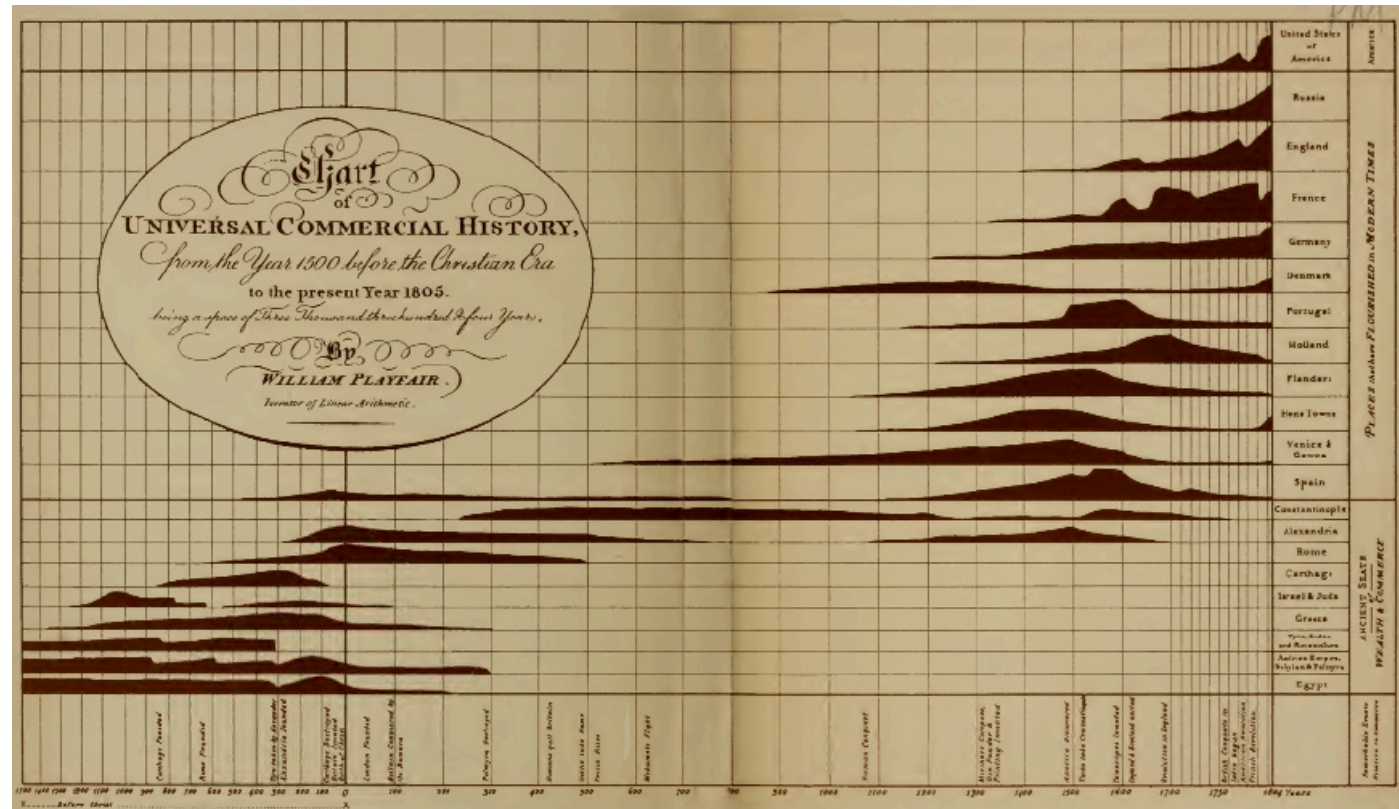 Chart
of
UNIVERSAL COMMERCIAL HISTORY,
from the Year 1500 before the Christian Era
to the present Year 1805.
being a space of Three Thousand three hundred & four Years,
By
WILLIAM PLAYFAIR.
Inventor of Linear Arithmetic.
United States
of
America
Russia
England
France
Germany
Denmark
Portugal
Holland
Flanders
Hans Towns
Venice &
Genoa
Spain
Constantinople
Alexandria
Rome
Carthage
Israel & Juda
Greece
Egypt
America
PLACES that have FLOURISHED in MODERN TIMES
ANCIENT SEATS
of
WEALTH & COMMERCE
Carthage Founded
Rome Founded
Tyre taken by Alexander
Alexandria founded
Carthage Destroyed
Britain Invaded
Birth of Christ
London Founded
Britain Conquered by
the Romans
Palmyra Destroyed
Romans quit Britain
Goths take Rome
Mahomets Flight
Norman Conquest
Mariners Compass,
Gun Powder &
Printing Invented
America discovered
Turks take Constantinople
England & Scotland united
Revolution in England
American Revolution
French Revolution
Remarkable Events
Relative to Commerce
1500 1400 1300 1200 1100 1000 900 800 700 600 500 400 300 200 100 X 100 200 300 400 500 600 700 800 900 1000 1100 1200 1300 1400 1500 1600 1700 1750 1804 Years
Before Christ